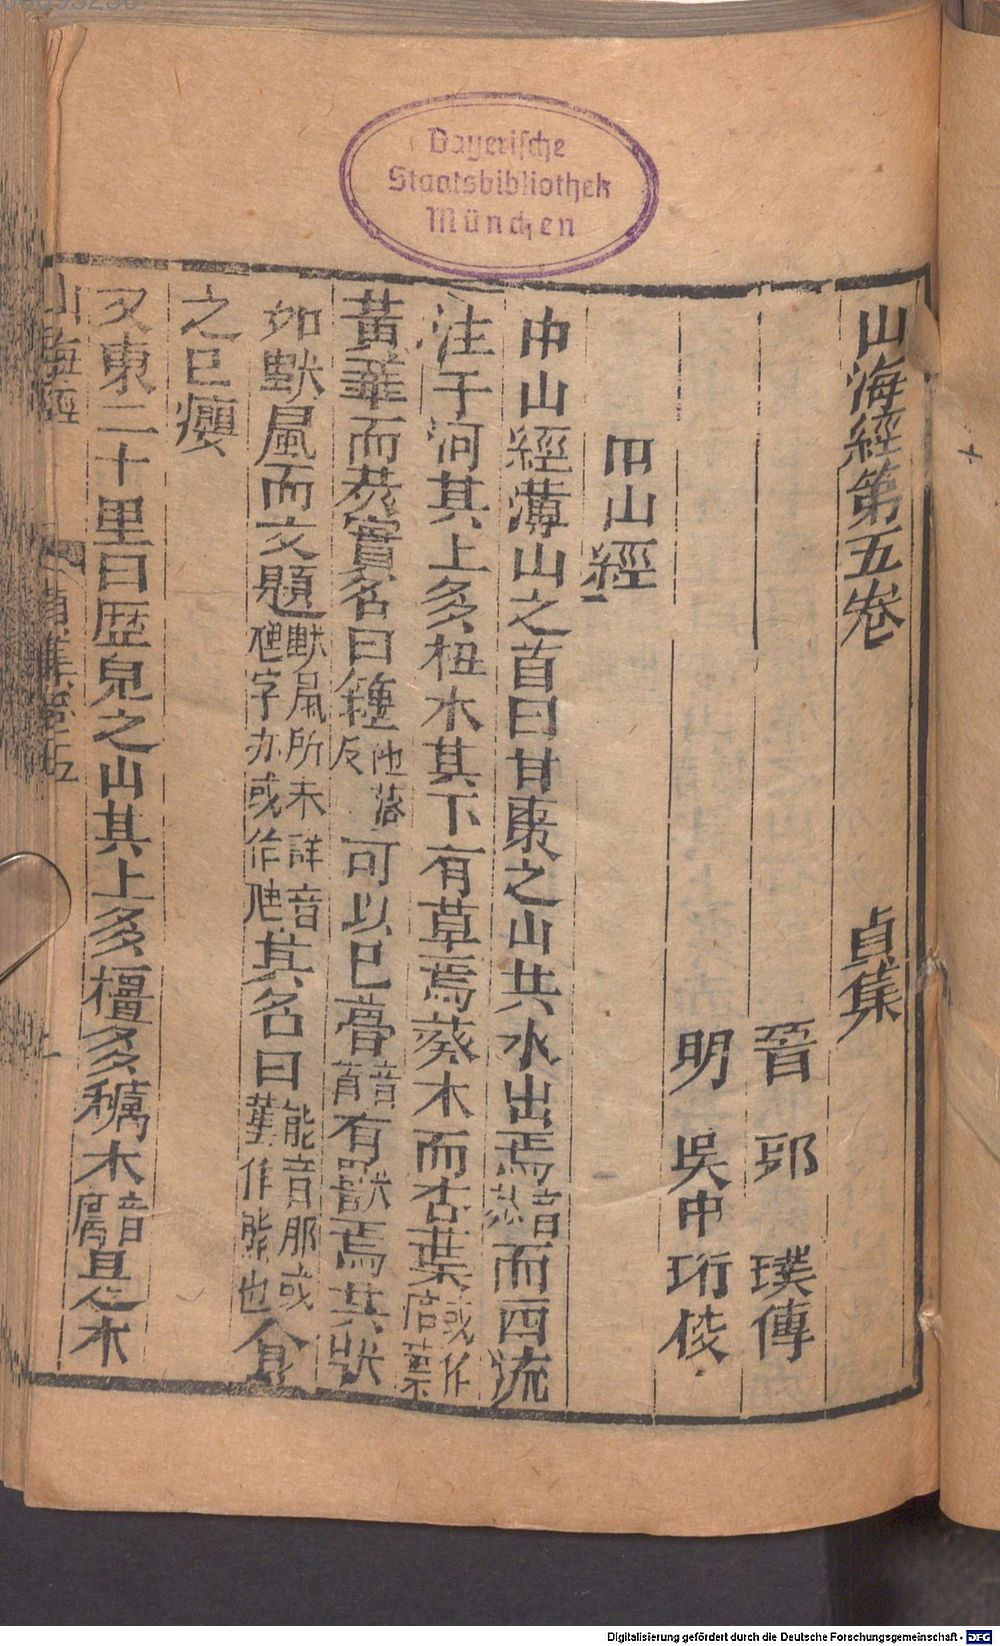 Bayerische
Staatsbibliothek
München
山海經第五卷 貞集
晉 郭 璞傳
明 吳中珩校
中山經
中山經薄山之首曰甘棗之山共水出焉音恭而西流
注于河其上多杻木其下有草焉葵木而杏葉或作楛葉
黃華而莢實名曰籜他落反可以已瞢音盲有獸焉其狀
如㹠鼠而文題㹠鼠所未詳音虺字亦或作虺其名曰㔮能音那或作熊也食
之已癭
又東二十里曰歷兒之山其上多橿多櫔木音厲是木
山海經 貞集卷五 上
Digitalisierung gefördert durch die Deutsche Forschungsgemeinschaft - DFG